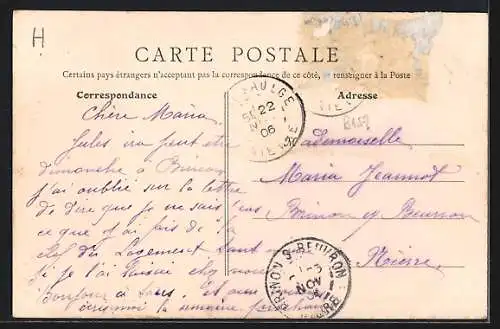 H
CARTE POSTALE
Certains pays étrangers n'acceptant pas la correspondance de ce côté, se renseigner à la Poste
Correspondance
Adresse
Chère Maria
Jules ira peut être
dimanche à Brinon
j'ai oublié sur la lettre
de dire que je ne sais pas
ce que j'ai fais de la
clef du Logement
si je l'ai laissé chez
bonjour à tous. Et
la semaine prochaine
22
06
Mademoiselle
Maria Jeannot
Brinon s/ Beuvron
Nièvre
BRINON-S-BEUVRON
NOV